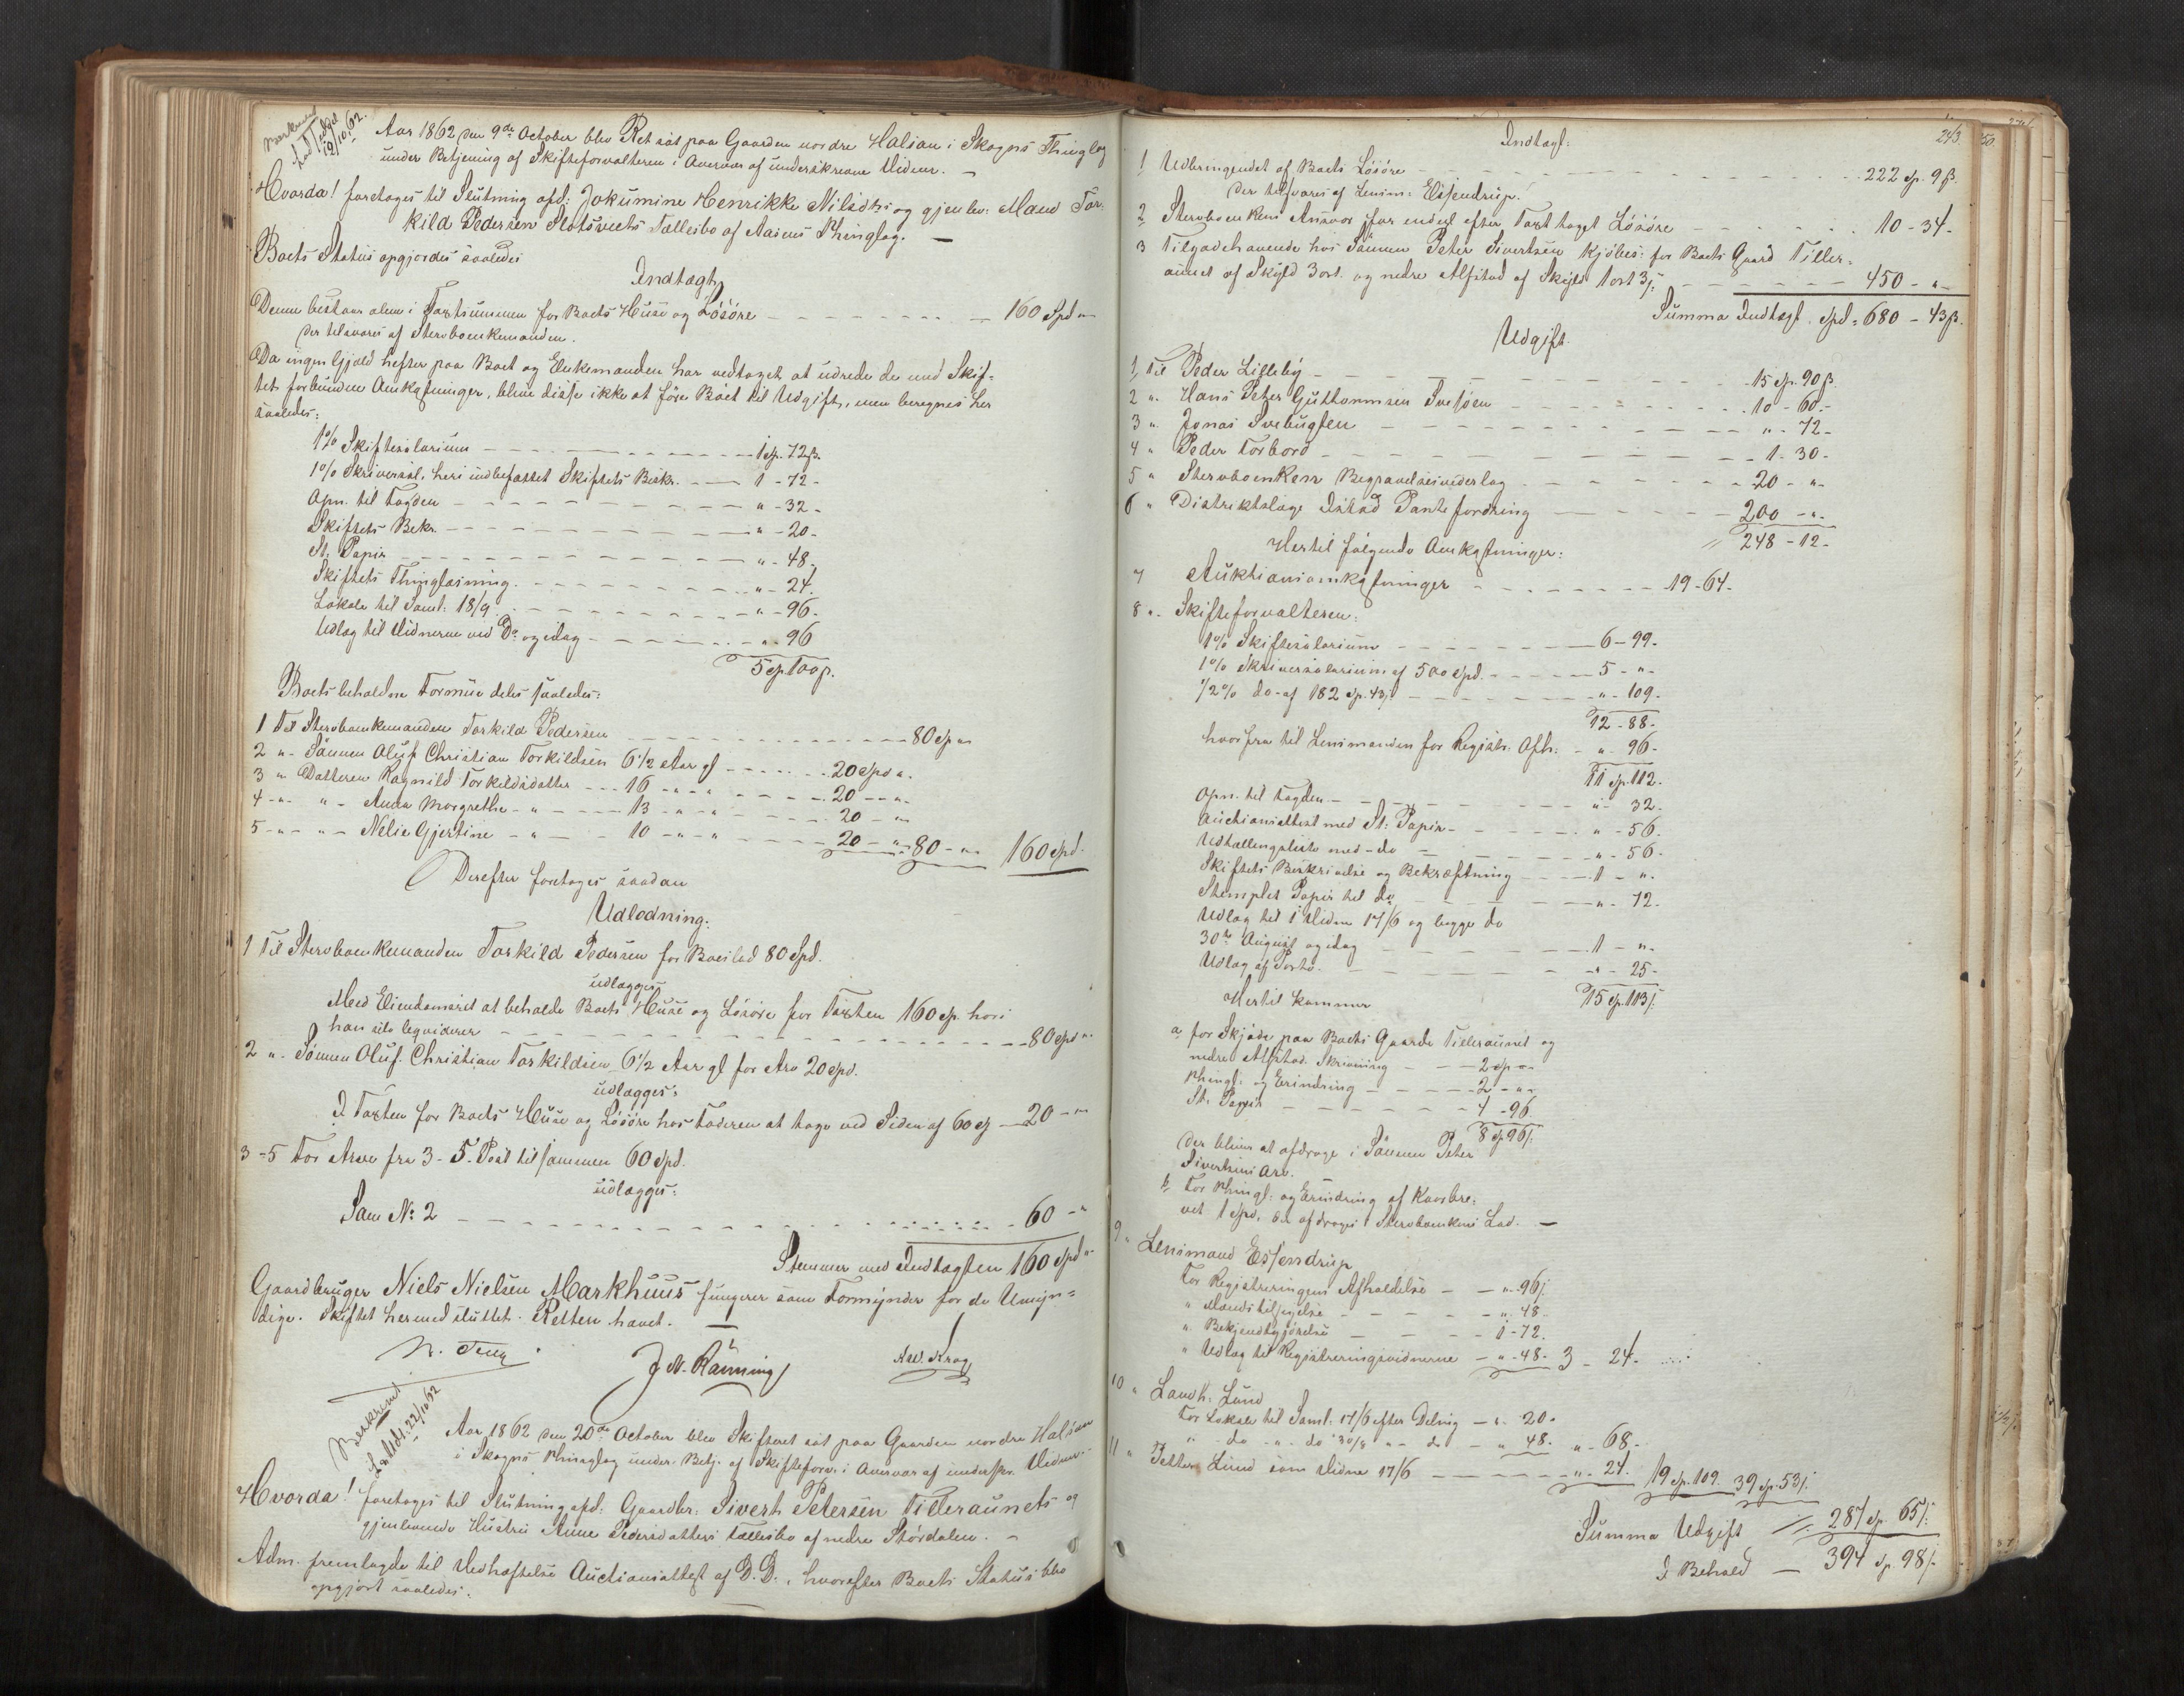 Aar 1862 den 9de October blev Ret sat paa Gaarden nordre Halsan i Skogns Thinglag
under Betjening af Skifteforvalteren i Overvær af underskrevne Vidner. —
Hvorda! foretoges til Slutning afd: Jokumine Henrikke Nilsdtr og gjenlev: Mand Tor-
kild Pedersen Slotsveets Fællesbo af Aasens Thinglag. —
Boets Status opgjordes saaledes
Indtægt,
Denne bestaar alene i Taxtsummen for Boets Huse og Løsøre — 160 Spd "
der tilsvares af Stervboenkemanden.
Da ingen Gjæld hefter paa Boet og Enkemanden har vedtaget at udrede de med Skif-
tet forbundne Omkostninger, blive disse ikke at føre Boet til Udgift, men beregnes her
saaledes:
1% Skiftesalarium — 1 sp. 72 ß.
1% Skriversal. heri indbefattet Skiftets Beskr. — 1 - 72 -
Opn. til Fogden — " - 32 -
Skiftets Bekr. — " - 20 -
St. Papir — " - 48 -
Skiftets Thinglæsning. — " - 24.
Lokale til Saml: 18/9 — " - 96 -
Udlæg til Vidnerne ved Do og idag — " - 96
5 sp. 100 ß.
Boets beholdne Formue deles saaledes:
1 Til Stervboenkemanden Torkild Pedersen — 80 sp "
2 " - Sønnen Oluf Christian Torkildsen 6 1/2 Aar gl — 20 spd ".
3 " Datteren Ragnild Torkildsdatter — 16 - " - " — 20 - " -
4 - " - " - Anna Margrethe - " — 13 - " - " — 20 - "
5 - " - " - Nelie Gjertine - " — 10 - " - " — 20 - " - 80 - " - 160 spd.
Derefter foretoges saadan
Udlodning:
1 Til Stervboenkemanden Torkild Pedersen for Boeslod 80 Spd.
udlægges
Med Eiendomsret at beholde Boets Huse og Løsøre for Taxten 160 sp. hvori
han selv liqviderer — 80 spd "
2 " - Sønnen Oluf Christian Torkildsen 6 1/2 Aar gl for Arv 20 spd.
udlægges:
I Taxten for Boets Huse og Løsøre hos Faderen at tage ved Siden af 60 sp — 20 - "
3 - 5 For Arven fra 3 - 5. Post tilsammen 60 Spd.
udlægges:
Som No 2 — 60 - "
Stemmer med Indtægten 160 spd "
Gaardbruger Niels Nielsen Markhuus fungerer som Formynder for de Umyn-
dige. Skiftet hermed sluttet. Retten hævet. —
J. N. Rønning
Aar 1862 den 20de October blev Skifteret sat paa Gaarden nordre Halsan
i Skogns Thinglag under Betj. af Skifteforv: i Overvær af underskr. Vidner
Hvorda! foretoges til Slutning afd. Gaardbr: Sivert Petersen Tilleraunets og
gjenlevende Hustru Anne Pedersdatters Fællesbo af nedre Størdalen. —
Adm. fremlagde til Vedhæftelse Auctionsattest af D. D., hvorefter Boets Status blev
opgjort saaledes:
243.
Indtægt:
1 Udbringendet af Boets Løsøre — 222 sp. 9 ß.
der tilsvares af Lensm: Essendrup.
2 Stervboenkens Ansvar for endel efter Taxt taget Løsøre — 10 - 34 -
3 Tilgodehavende hos Sønnen Peter Sivertsen Kjøbes: for Boets Gaard Tiller-
aunet af Skyld 3 ort. og nedre Alstad af Skyld 1 ort 3 ß. — 450 - " -
Summa Indtægt. spd. 680 - 43 ß.
Udgift.
1, Til Peder Lilleby — 15 sp. 90 ß.
2 " - Hans Peter Guttormsen — 10 - 60 -
3 " Jonas Svebugten — " - 72 -
4 " Peder Forbord — 1 - 30 -
5 " Stervboenkens Begravelsesvederlag — 20 - " -
6 " Distriktslæge Pantefordring — 200 - " -
248 - 12 -
Hertil følgende Omkostninger:
7 Auktionsomkostninger — 19 - 64 -
8 " - Skifteforvalteren:
1% Skiftesalarium — 6 - 99 -
1% Skriversalarium af 500 spd. — 5 - " -
1/2% do - af 182 sp. 43 ß — " - 109 -
12 - 88 -
hvorfra til Lensmanden for Registr. Afh: — " - 96 -
11 sp. 112 -
Opn. til Fogden — " - 32 -
Auctionsattest med St: Papir — " - 56 -
Udstællingsliste med - do — " - 56 -
Skiftets Beskrivelse og Bekræftning — 1 - " -
Stemplet Papir til do — " - 72 -
Udlæg til 1 Vidne 17/6 og begge do
30te August og idag — 1 - " -
Udlæg af Porto. — " - 25 -
Hertil kommer 15 sp. 113 ß
a, for Skjøde paa Boets Gaarde Tilleraunet og
nedre Alstad. Skrivning — 2 sp "
Thingl: og Erindring — 2 - " -
St. Papir — 4 - 96
8 sp 96 ß.
der blive at afdrage i Sønnen Peter
Sivertsens Arv. —
b, For Thingl: og Erindring af Kaarbre-
vet 1 Spd, der afdrages i Stervboenkens Lod. —
9 " Lensmand Essendrup
For Registreringens Afholdelse — " - 96 ß
" Mænds tilsigelse — " - 48 -
" Bekjendtgjørelse — 1 - 72 -
" Udlæg til Registreringsvidnerne — " - 48 - 3 - 24 -
10 " Landh: Lund
For Lokale til Saml: 17/6 efter Deling — " - 20 -
" - do - " - do 30/8 " - do — " - 48 - " - 68 -
11 " Petter Lund som Vidne 17/6 — " - 24. 19 sp. 109. 39 sp. 53 ß
Summa Udgift 287 sp. 65 ß
I Behold — 394 sp. 98 ß.